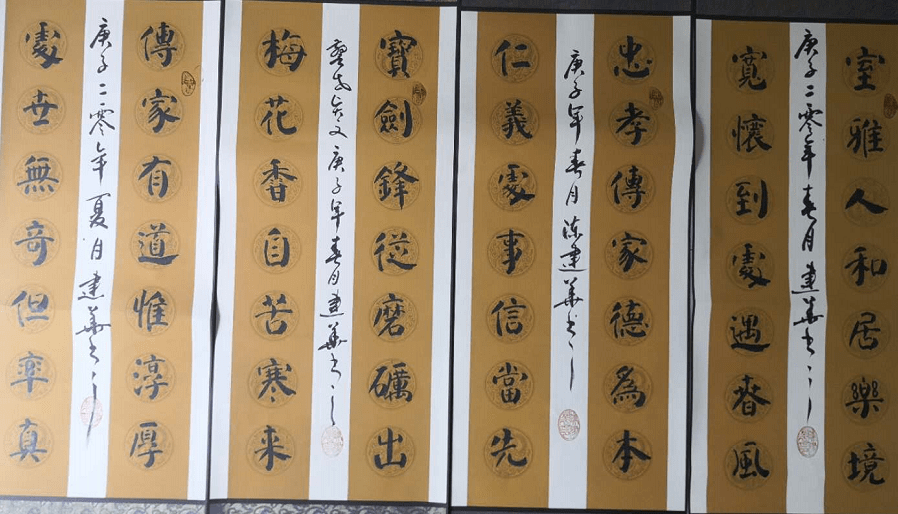 室雅人和居樂境
庚子二零年春月建華书
寬懷到處遇春風
忠孝傳家德爲本
庚子年春月陈建華书
仁義處事信當先
寶劍鋒從磨礪出
警世贤文庚子年春月建華书
梅花香自苦寒来
傳家有道惟淳厚
庚子二零年夏月建華书
處世無奇但率真